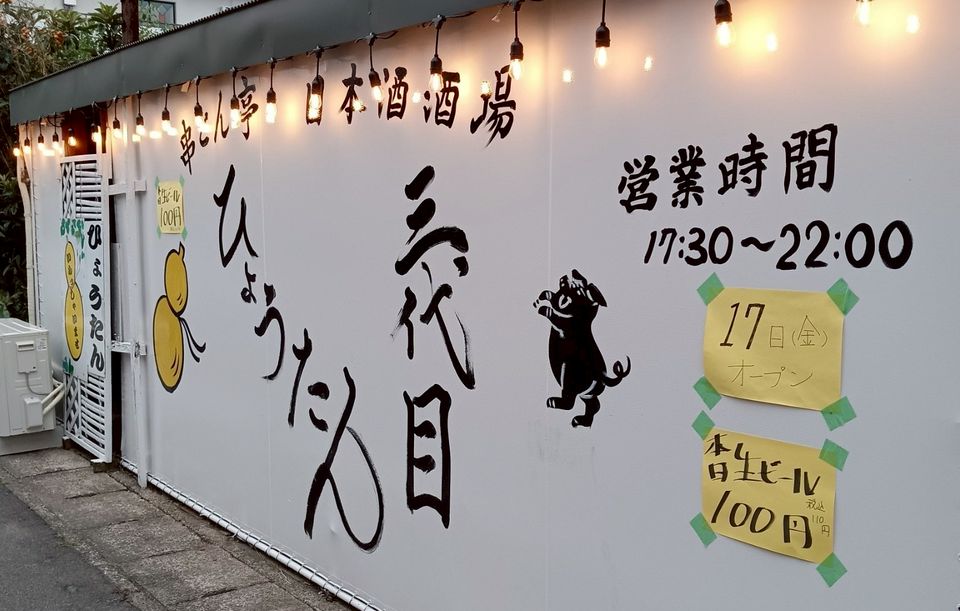 串どん亭 日本酒酒場
三代目
ひょうたん
営業時間
17:30～22:00
17日(金)
オープン
本日生ビール
100円
税込
110円
本日生ビール
100円
ひょうたん
いらっしゃいませ